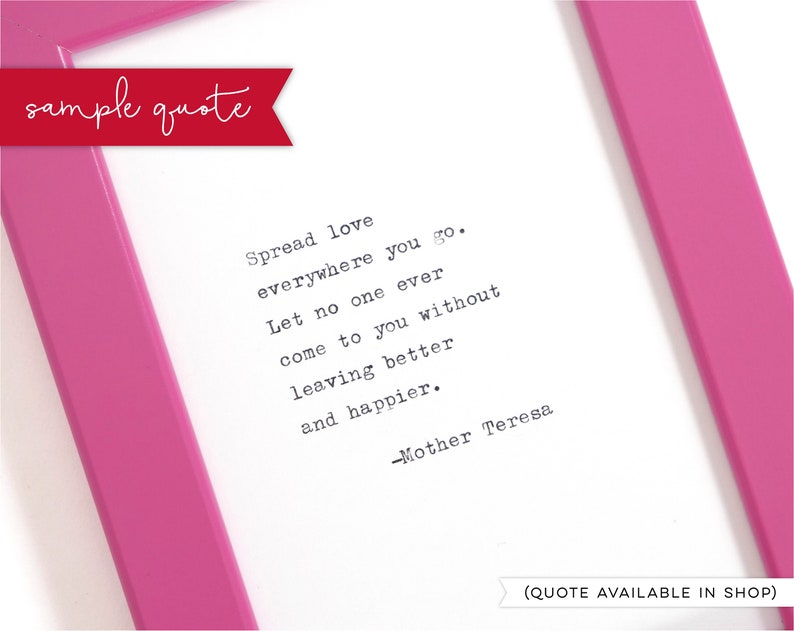 sample quote
Spread love
everywhere you go.
Let no one ever
come to you without
leaving better
and happier.
—Mother Teresa
(QUOTE AVAILABLE IN SHOP)